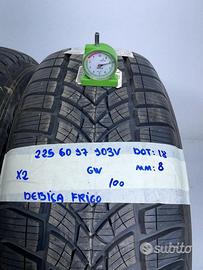 225 60 97 903V DOT: 18
X2 GW MM: 8
100
DEBICA FRIGO
subito